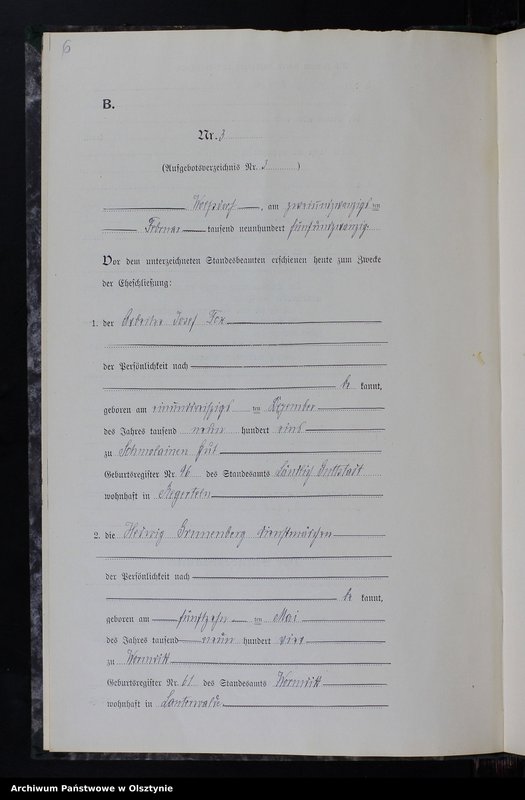 6
B.
Nr. 3
(Aufgebotsverzeichnis Nr. 3 )
, am zweiundzwanzigsten
Februar tausend neunhundert fünfundzwanzig
Vor dem unterzeichneten Standesbeamten erschienen heute zum Zwecke
der Eheschließung:
1. der Arbeiter Josef Fox
der Persönlichkeit nach
be kannt,
geboren am einunddreißigsten Dezember
des Jahres tausend neun hundert eins
zu Schmolainen Gut
Geburtsregister Nr. 96 des Standesamts Guttstadt
wohnhaft in Regerteln
2. die Hedwig Dienstmädchen
der Persönlichkeit nach
be kannt,
geboren am fünfzehn ten Mai
des Jahres tausend neun hundert vier
zu Wormditt
Geburtsregister Nr. 61 des Standesamts Wormditt
wohnhaft in Lauterwalde
Archiwum Państwowe w Olsztynie